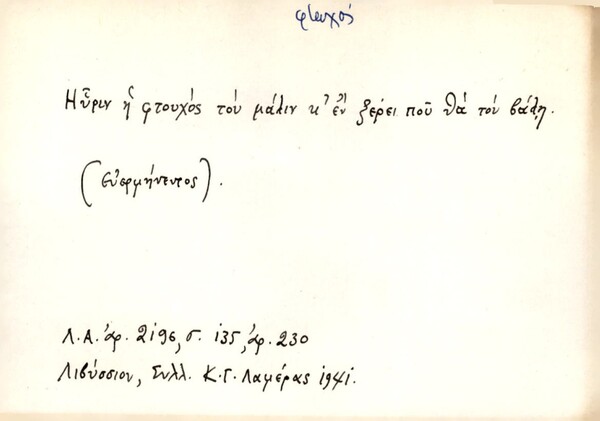 φτωχός
Ηὗριν ἡ φτουχός τοὺ μάλιν κ' ἐν ξέρει ποῦ θὰ τὸν βάλῃ.
(Εὐερμήνευτος).
Λ.Α. ἀρ. 2196, σ. 135, ἀρ. 230
Λιβύσσιον, Συλλ. Κ.Γ. Λαμέρας 1941.